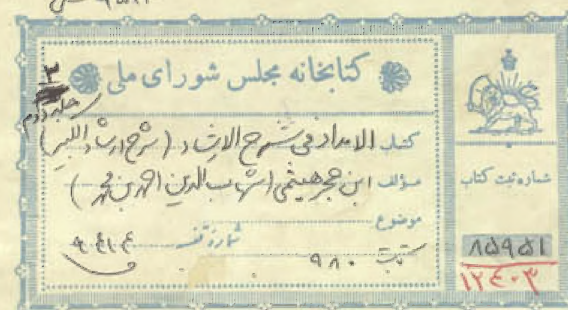 کتابخانه مجلس شورای ملی
جلد دوم
کتاب الامداد فی شرح الارشاد (شرح ارشاد الکبیر)
مؤلف ابن حجر هیثمی (شهاب الدین احمد بن محمد)
موضوع
شماره قفسه
کتابت ۹۸۰
شماره ثبت کتاب
۸۵۹۵۱
۱۲۴۰۳